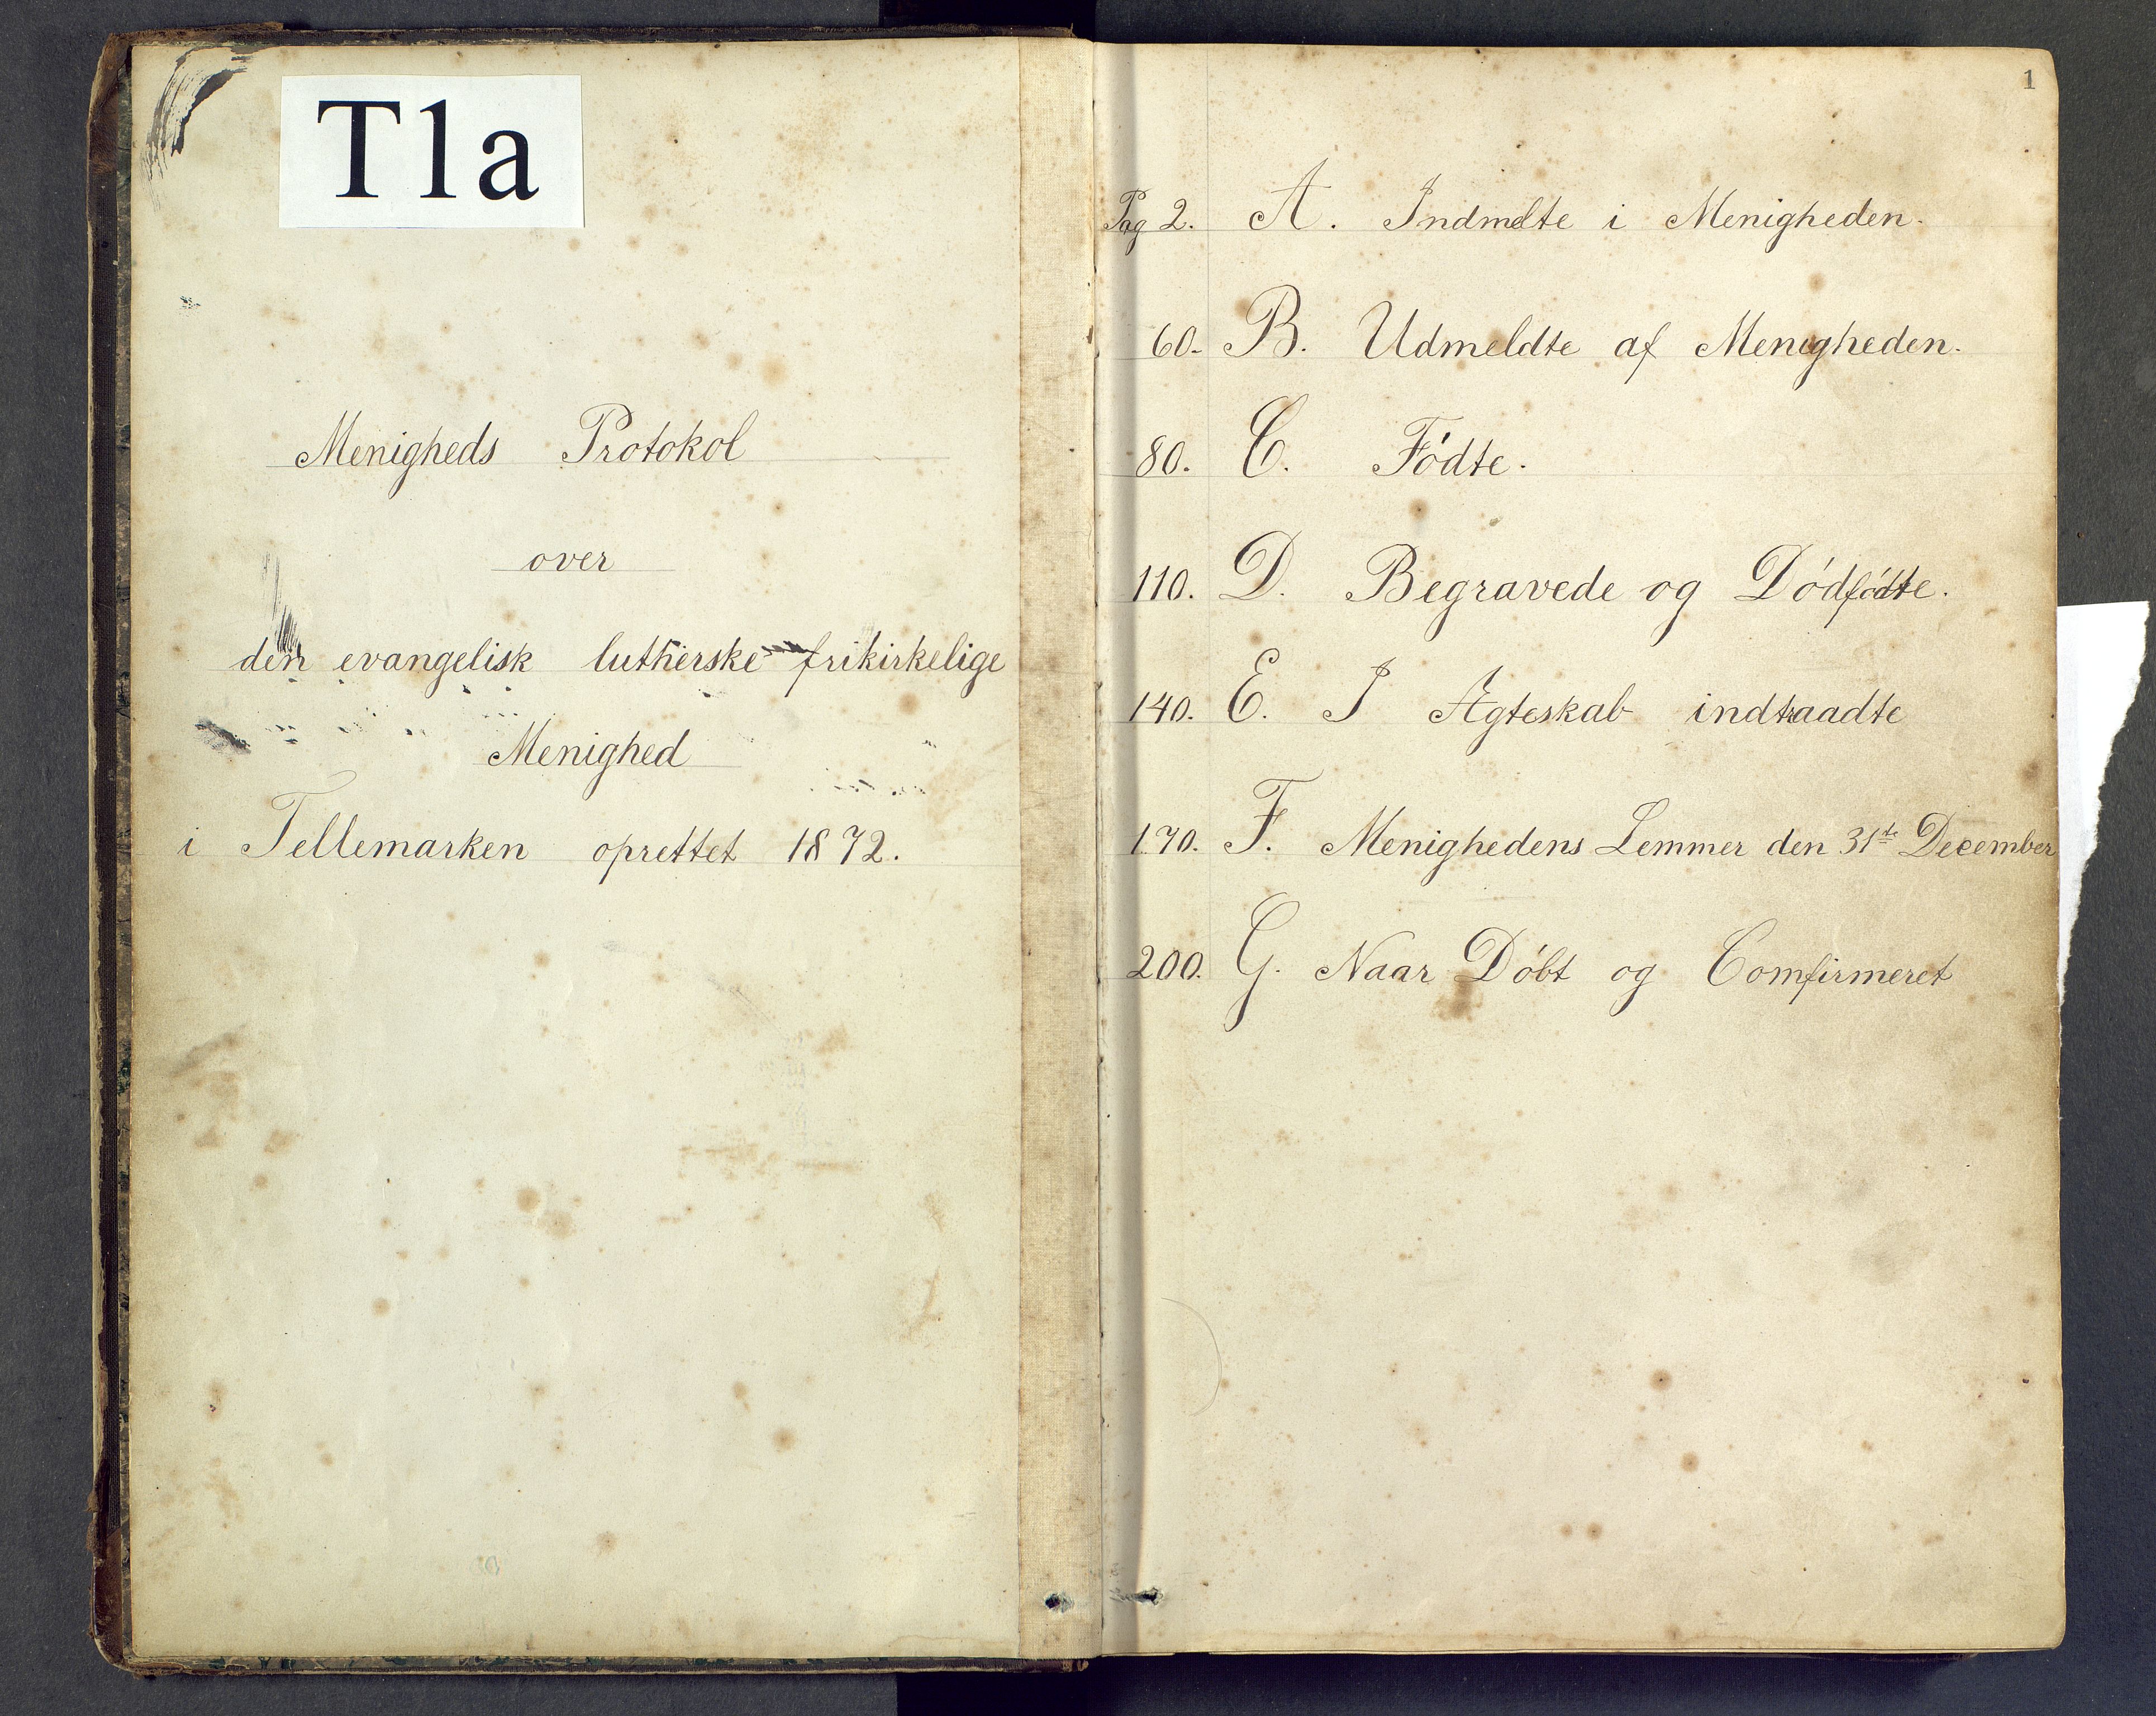 T1a
Menigheds Protokol
over
den evangelisk lutherske frikirkelige
Menighed
i Tellemarken oprettet 1872.
1
Pag 2. A. Indmelte i Menigheden.
60. B. Udmeldte af Menigheden.
80. C. Fødte.
110. D. Begravede og Dødfødte.
140. E. I Ægteskab indtraadte
170. F. Menighedens Lemmer den 31te December
200. G. Naar Døbt og Comfirmeret